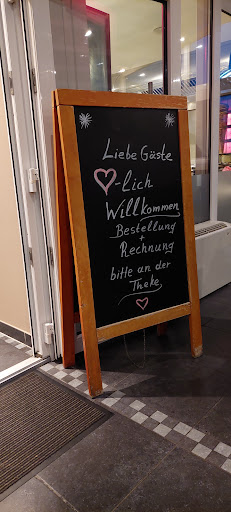 Liebe Gäste
♡-lich
Willkommen
Bestellung
+
Rechnung
bitte an der
Theke